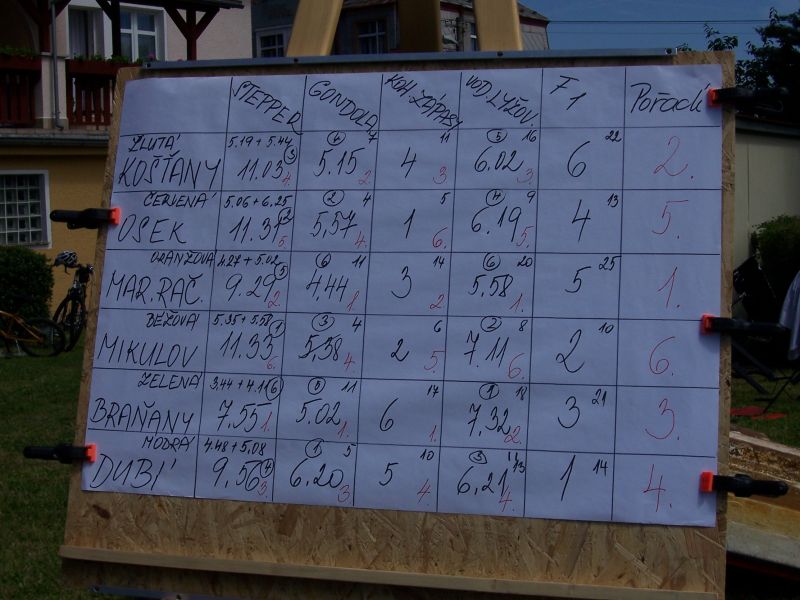 STEPPER GONDOLA KOH. ZÁPASY VOD. LYŽOV. F1 Pořadí
ŽLUTÁ 5.19 + 5.44 4 7 11 5 16 22
KOŠŤANY 11.03 3 4. 5.15 2. 4 3. 6.02 3. 6 2.
ČERVENÁ 5.06 + 6.25 2 4 5 4 9 13
OSEK 11.31 2 5. 5,57 4. 1 6. 6.19 5. 4 5.
ORANŽOVÁ 4.27 + 5.02 6 11 14 6 20 25
MAR. RAČ. 9.29 5 2. 4,44 1. 3 2 5,58 1. 5 1.
BÉŽOVÁ 5.35 + 5.58 3 4 6 2 8 10
MIKULOV 11.33 1 6. 5,38 4. 2 5. 7.11 6. 2 6.
ZELENÁ 3.44 + 4.11 6 5 11 17 1 18 21
BRAŇANY 7.55 1. 5.02 1. 6 1. 7,32 2. 3 3.
MODRÁ 4.48 + 5,08 1 5 10 3 13 14
DUBÍ 9.56 4 3. 6.20 3 5 4. 6,21 4. 1 4.